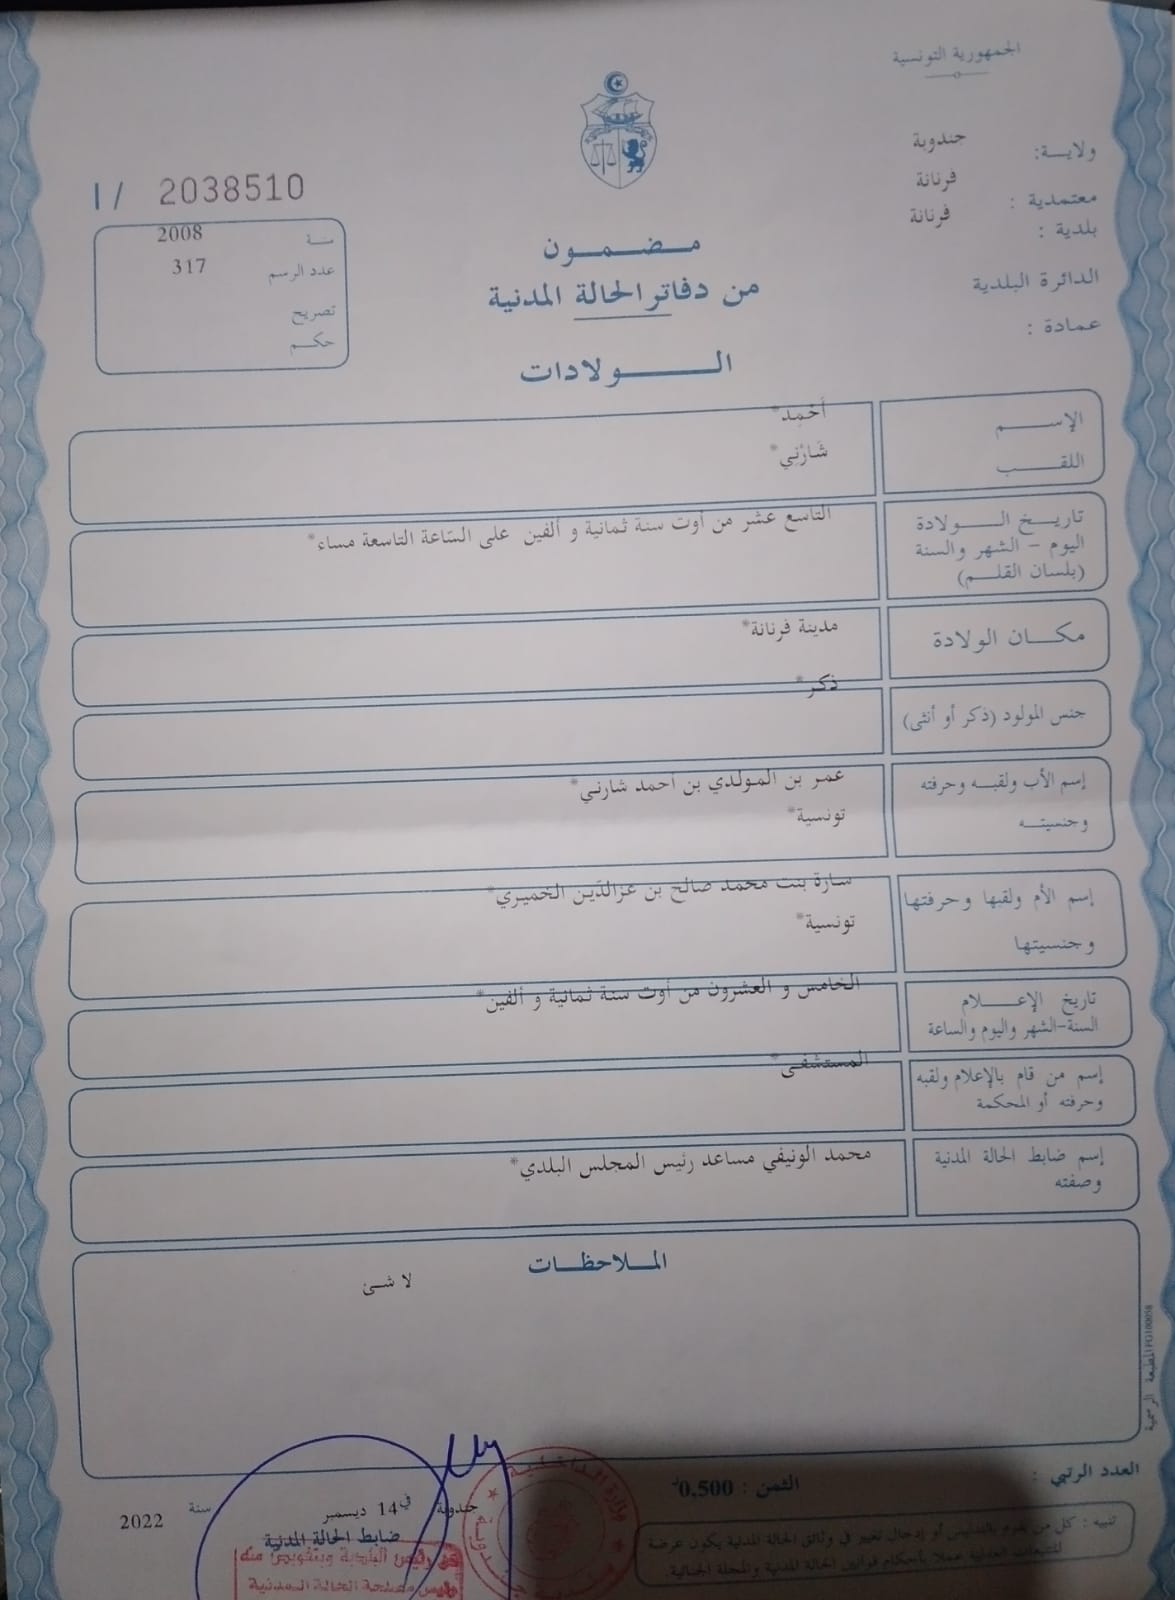 الجمهورية التونسية
ولاية: جندوبة
معتمدية : فرنانة
بلدية : فرنانة
الدائرة البلدية
عمادة :
I / 2038510
سنة 2008
عدد الرسم 317
تصريح
حكم
مضمون
من دفاتر الحالة المدنية
الولادات
الإسم أَحْمِد*
اللقب شَارْنِي*
تاريخ الولادة
اليوم - الشهر والسنة
(بلسان القلم)
التاسع عشر من أوت سنة ثمانية و ألفين على السّاعة التاسعة مساء*
مكان الولادة
مدينة فرنانة*
جنس المولود (ذكر أو أنثى)
ذكر*
إسم الأب ولقبه وحرفته
وجنسيته
عمر بن المولدي بن أحمد شارني*
تونسية*
إسم الأم ولقبها وحرفتها
وجنسيتها
سارة بنت محمد صالح بن عزالدّين الخميري*
تونسية*
تاريخ الإعلام
السنة-الشهر واليوم والساعة
الخامس و العشرون من أوت سنة ثمانية و ألفين*
إسم من قام بالإعلام ولقبه
وحرفته أو المحكمة
المستشفى*
إسم ضابط الحالة المدنية
وصفته
محمد الونيفي مساعد رئيس المجلس البلدي*
الملاحظات
لا شئ
المطبعة الرسمية PG100058
العدد الرتبي :
الثمن : 0,500
تنبيه : كل من يقوم بالتدليس أو إدخال تغيير في وثائق الحالة المدنية يكون عرضة
للتتبعات العدلية عملا بأحكام قوانين الحالة المدنية والمجلة الجنائية.
جندوبة في 14 ديسمبر سنة 2022
ضابط الحالة المدنية
رئيس البلدية وبتفويض منه
رئيس مصلحة الحالة المدنية
وزارة الداخلية